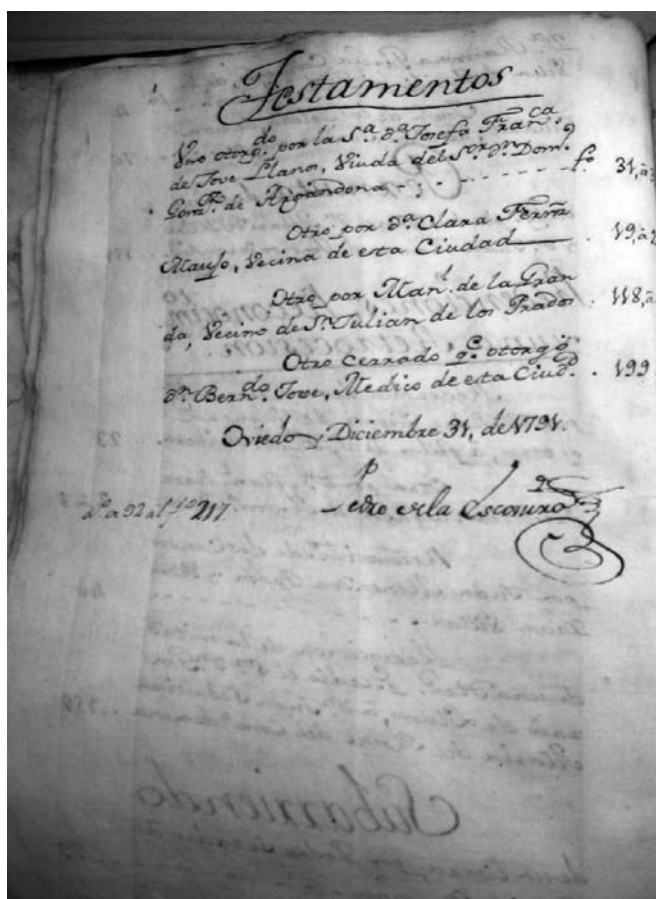 Testamentos
Vno otorg.do por la S.a d.a Josefa Fran.ca
de Jove Llanos, Viuda del S.or d.n Dom.o
Gom.z de Argandona - - - - - - - f.o 31, à
Otro por d.a Clara Fern.a
, Vecina de esta Ciudad 19, à
Otro por Man.l de la Gran
da, Vecino de S.n Julian de los Prados . 118, à
Otro cerrado q.e otorgó
d.n Bern.do Jove, Medico de esta Ciud.d . 199
Oviedo y Diciembre 31, de 1791.
Pedro de la Escosura
a 92 al f.o 217.